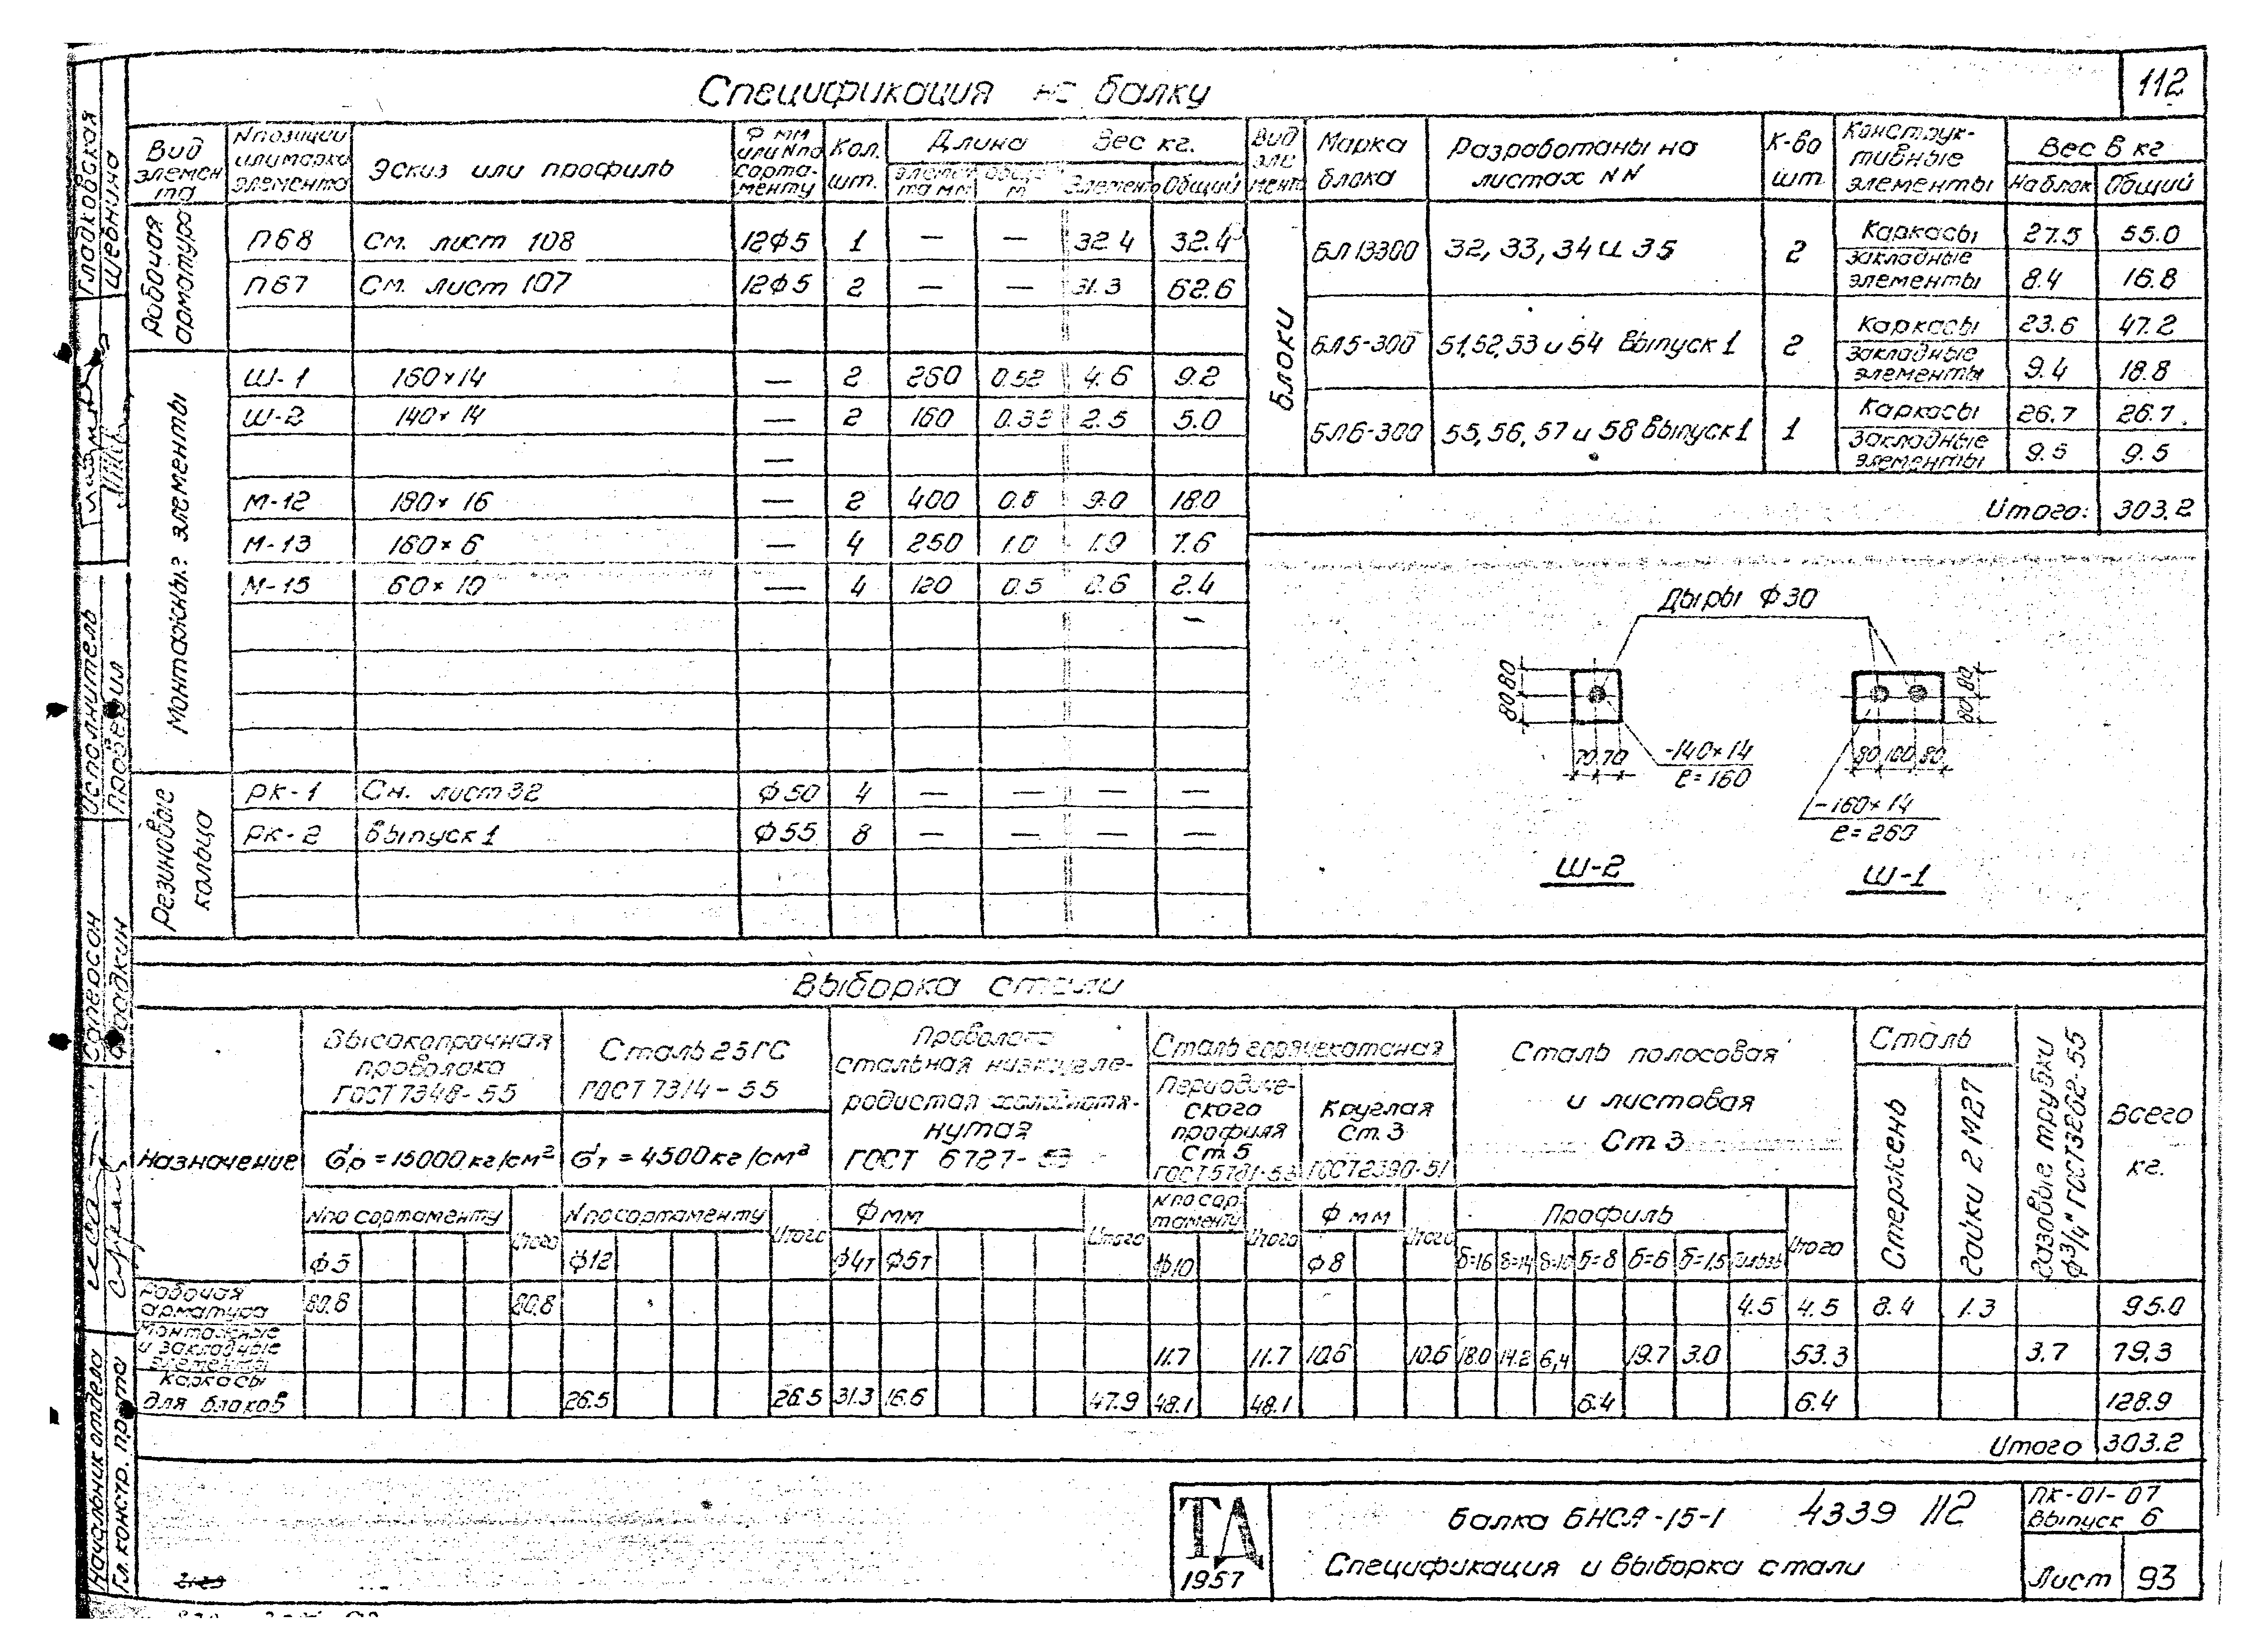 Спецификация на балку
112
Вид элемента
N позиции или марка элемента
Эскиз или профиль
Ф мм или N по сортаменту
Кол. шт.
Длина
Вес кг.
Элемента мм
Общая м
Элемента
Общий
Рабочая арматура
П68 См. лист 108 12ф5 1 — — 32.4 32.4
П67 См. лист 107 12ф5 2 — — 31.3 62.6
Монтажные элементы
Ш-1 160×14 — 2 260 0.52 4.6 9.2
Ш-2 140×14 — 2 160 0.32 2.5 5.0
—
М-12 180×16 — 2 400 0.8 9.0 18.0
М-13 160×6 — 4 250 1.0 1.9 7.6
М-15 60×10 — 4 120 0.5 0.6 2.4
Резиновые кольца
РК-1 См. лист 32 ф50 4 — — — —
РК-2 Выпуск 1 ф55 8 — — — —
Вид элемента
Марка блока
Разработаны на листах NN
К-во шт.
Конструктивные элементы
Вес в кг
На блок
Общий
Блоки
БЛ13300 32, 33, 34 и 35 2
Каркасы 27.5 55.0
Закладные элементы 8.4 16.8
БЛ5-300 51,52,53 и 54 Выпуск 1 2
Каркасы 23.6 47.2
Закладные элементы 9.4 18.8
БЛ6-300 55, 56, 57 и 58 Выпуск 1 1
Каркасы 26.7 26.7
Закладные элементы 9.5 9.5
Итого: 303.2
Дыры ф30
80 80
70 70
-140×14
ℓ=160
Ш-2
80 100 80
-160×14
ℓ=260
Ш-1
Выборка стали
Назначение
Высокопрочная проволока
ГОСТ 7348-55
σр = 15000 кг/см²
N по сортаменту
ф5
Итого
Сталь 25ГС
ГОСТ 7314-55
σт = 4500 кг/см²
N по сортаменту
ф12
Итого
Проволока стальная низкоуглеродистая холоднотянутая
ГОСТ 6727-53
Ф мм
ф4т ф5т
Итого
Сталь горячекатаная
Периодического профиля Ст. 5
ГОСТ 5781-53
N по сортаменту
ф10
Итого
Круглая Ст. 3
ГОСТ 2590-51
Ф мм
ф8
Итого
Сталь полосовая
и листовая
Ст. 3
Профиль
δ=16 δ=14 δ=10 δ=8 δ=6 δ=1,5
Итого
Сталь
Стержень
Гайки 2 М27
Газовые трубки ф3/4" ГОСТ 3262-55
Всего кг.
Рабочая арматура 80.8 80.8 4.5 4.5 8.4 1.3 95.0
Монтажные и закладные элементы 11.7 11.7 10.6 10.6 18.0 14.2 6,4 19.7 3.0 53.3 3.7 79.3
Каркасы для блоков 26.5 26.5 31.3 16.6 47.9 48.1 48.1 6.4 6.4 128.9
Итого 303.2
ТД
1957
Балка БНСЯ-15-1 4339 112
Спецификация и выборка стали
ПК-01-07
Выпуск 6
Лист 93
Гладковская
Щербина
Исполнитель
Проверил
Начальник отдела
Гл. констр.